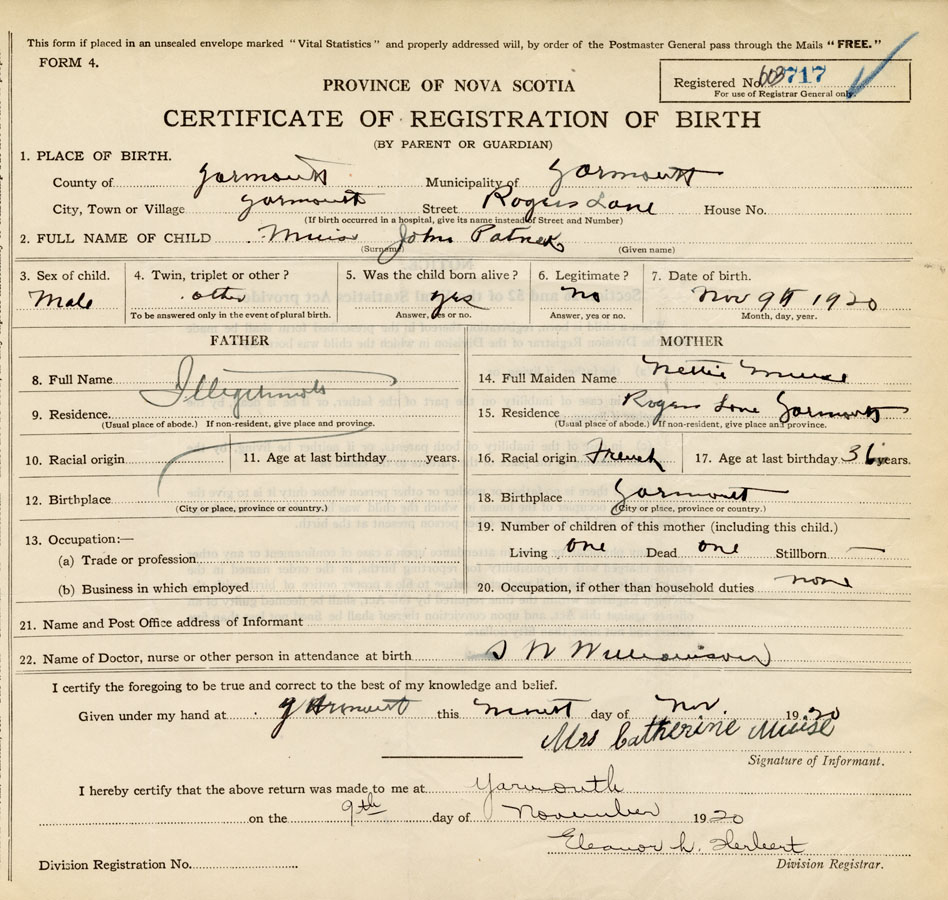 This form if placed in an unsealed envelope marked "Vital Statistics" and properly addressed will, by order of the Postmaster General pass through the Mails "FREE."
FORM 4.
Registered No. 717
For use of Registrar General only.
PROVINCE OF NOVA SCOTIA
CERTIFICATE OF REGISTRATION OF BIRTH
(BY PARENT OR GUARDIAN)
1. PLACE OF BIRTH.
County of Yarmouth Municipality of Yarmouth
City, Town or Village Yarmouth Street Rogers Lane House No.
(If birth occurred in a hospital, give its name instead of Street and Number)
2. FULL NAME OF CHILD Muise John Patrick
(Surname) (Given name)
3. Sex of child. 4. Twin, triplet or other? 5. Was the child born alive? 6. Legitimate? 7. Date of birth.
Male other yes no Nov 9th 1920
To be answered only in the event of plural birth. Answer, yes or no. Answer, yes or no. Month, day, year.
FATHER
8. Full Name Illegitimate
9. Residence.
(Usual place of abode.) If non-resident, give place and province.
10. Racial origin 11. Age at last birthday years.
12. Birthplace
(City or place, province or country.)
13. Occupation:—
(a) Trade or profession
(b) Business in which employed
MOTHER
14. Full Maiden Name Nettie Muise
15. Residence Rogers Lane Yarmouth
(Usual place of abode.) If non-resident, give place and province.
16. Racial origin French 17. Age at last birthday 36 years.
18. Birthplace Yarmouth
(City or place, province or country.)
19. Number of children of this mother (including this child.)
Living one Dead one Stillborn —
20. Occupation, if other than household duties none
21. Name and Post Office address of Informant
22. Name of Doctor, nurse or other person in attendance at birth S W Williamson
I certify the foregoing to be true and correct to the best of my knowledge and belief.
Given under my hand at Yarmouth this day of Nov. 1920
Mrs Catherine Muise
Signature of Informant.
I hereby certify that the above return was made to me at Yarmouth
on the 9th day of November 1920
Eleanor L. Herbert
Division Registration No. Division Registrar.